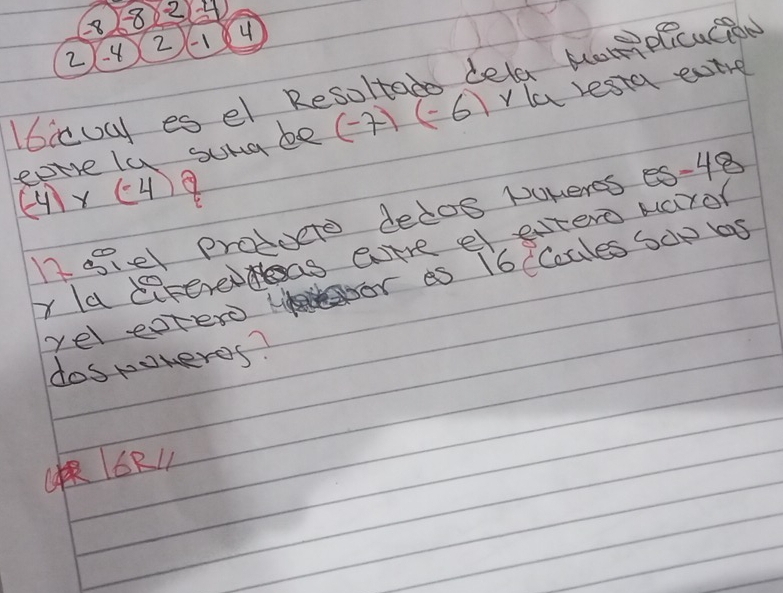 -8 -8 2 -4
2 -4 2 -1 4
16¿cual es el Resoltado dela Multiplicación
entre la suma de (-7) (-6) y la resta entre
(-4) y (-4)?
17 si el Producto de dos numeros es -48
y la diferencias entre el entero mayor
y el entero menor es 16 ¿Cuales son los
dos numeros?
16R//